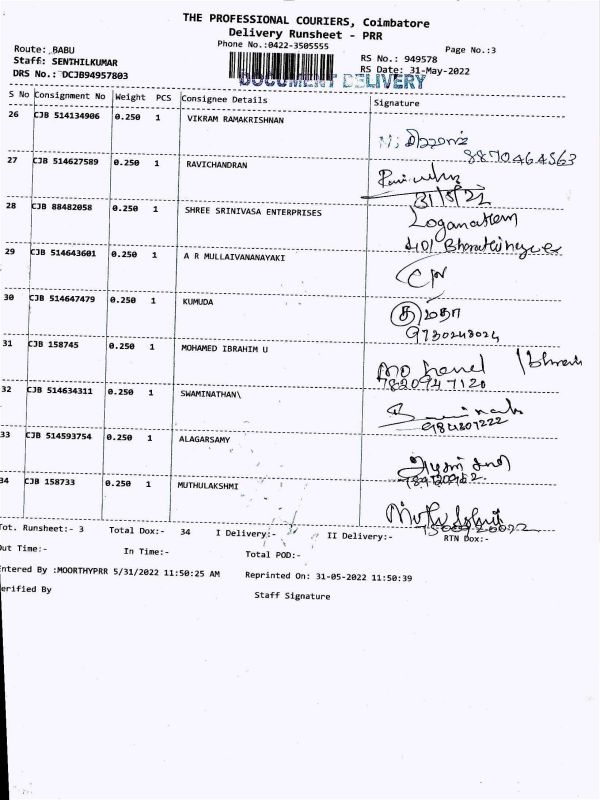 THE PROFESSIONAL COURIERS, Coimbatore
Delivery Runsheet - PRR
Phone No.:0422-3505555
Page No.:3
Route: BABU
Staff: SENTHILKUMAR
DRS No.: DCJB94957803
RS No.: 949578
RS Date: 31-May-2022
DOCUMENT DELIVERY
S No Consignment No Weight PCS Consignee Details Signature
26 CJB 514134906 0.250 1 VIKRAM RAMAKRISHNAN
8870464563
27 CJB 514627589 0.250 1 RAVICHANDRAN
31/5/22
28 CJB 88482058 0.250 1 SHREE SRINIVASA ENTERPRISES
Loganathem
29 CJB 514643601 0.250 1 A R MULLAIVANANAYAKI
30 CJB 514647479 0.250 1 KUMUDA
9730243024
31 CJB 158745 0.250 1 MOHAMED IBRAHIM U
7820947120
32 CJB 514634311 0.250 1 SWAMINATHAN\
984807222
33 CJB 514593754 0.250 1 ALAGARSAMY
34 CJB 158733 0.250 1 MUTHULAKSHMI
Tot. Runsheet:- 3 Total Dox:- 34 I Delivery:- II Delivery:- RTN Dox:-
Out Time:- In Time:- Total POD:-
Entered By :MOORTHYPRR 5/31/2022 11:50:25 AM Reprinted On: 31-05-2022 11:50:39
erified By Staff Signature